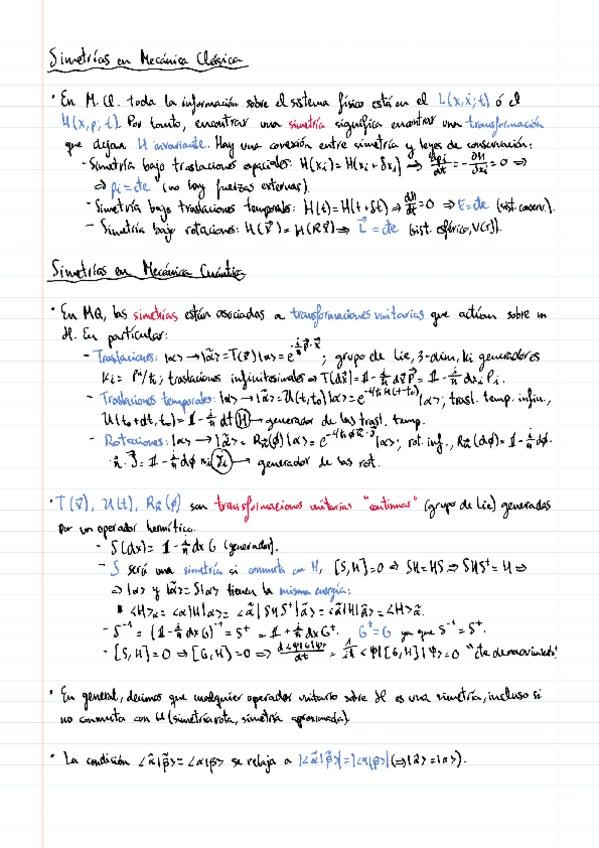 Simetrías en Mecánica Clásica
· En M. Cl. toda la información sobre el sistema físico está en el L(x,ẋ;t) ó el
H(x,p;t). Por tanto, encontrar una simetría significa encontrar una transformación
que dejan H invariante. Hay una conexión entre simetría y leyes de conservación:
- Simetría bajo traslaciones espaciales: H(xi) = H(xi + δxi) → dpi/dt = -∂H/∂xi = 0 ⇒
⇒ pi = cte (no hay fuerzas externas).
- Simetría bajo traslaciones temporales: H(t) = H(t+δt) ⇒ dH/dt = 0 ⇒ E = cte (sist. conserv.).
- Simetría bajo rotaciones: H(r⃗) = H(Rr⃗) ⇒ L⃗ = cte (sist. esférico, V(r)).
Simetrías en Mecánica Cuántica
· En MQ, las simetrías están asociadas a transformaciones unitarias que actúan sobre un
H. En particular:
- Traslaciones: |α> → |α̃> = T(x⃗)|α> = e^{-i/ħ p⃗·x⃗}; grupo de Lie, 3-dim, ki generadores
Ki = Pi/ħ; traslaciones infinitesimales ⇒ T(dx⃗) = 𝟙 - i/ħ dx⃗ P⃗ = 𝟙 - i/ħ dxi Pi.
- Traslaciones temporales: |α> → |α̃> = U(t,t0)|α> = e^{-i/ħ H(t-t0)}|α>; trasl. temp. infin.,
U(t0+dt,t0) = 𝟙 - i/ħ dt H → generador de las trasl. temp.
- Rotaciones: |α> → |α̃> = Rn⃗(ϕ)|α> = e^{-i/ħ ϕ n⃗·J⃗}|α>; rot. inf., Rn⃗(dϕ) = 𝟙 - i/ħ dϕ·
·n⃗·J⃗ = 𝟙 - i/ħ dϕ ni Ji → generador de las rot.
· T(x⃗), U(t), Rn⃗(ϕ) son transformaciones unitarias "continuas" (grupo de Lie) generadas
por un operador hermítico.
- S(dx) = 𝟙 - i/ħ dx G (generador).
- S será una simetría si conmuta con H, [S,H] = 0 ⇒ SH = HS ⇒ SHS⁺ = H ⇒
⇒ |α> y |α̃> = S|α> tienen la misma energía:
* <H>α = <α|H|α> = <α̃|SHS⁺|α̃> = <α̃|H|α̃> = <H>α̃.
- S⁻¹ = (𝟙 - i/ħ dx G)⁻¹ = S⁺ = 𝟙 + i/ħ dx G⁺. G⁺ = G ya que S⁻¹ = S⁺.
- [S,H] = 0 ⇒ [G,H] = 0 ⇒ d<ψ|G|ψ>/dt = 1/iħ <ψ|[G,H]|ψ> = 0 "cte de movimiento"
· En general, decimos que cualquier operador unitario sobre H es una simetría, incluso si
no conmuta con H (simetría rota, simetría aproximada).
· La condición <α̃|β̃> = <α|β> se relaja a |<α̃|β̃>| = |<α|β>| (⇒ |α̃> = |α>).